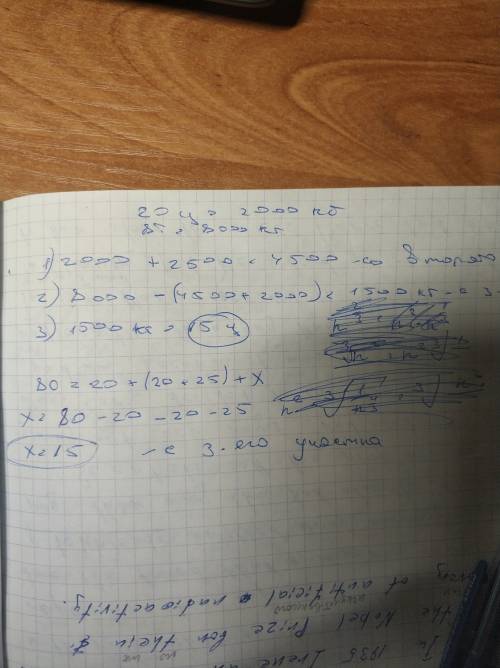 20 ц = 2000 кг
8т. = 8000 кг
1) 2000 + 2500 = 4500 - со второго
2) 8000 - (4500 + 2000) = 1500 кг - с 3-
3) 1500 кг = 15 ц
80 = 20 + (20 + 25) + x
x = 80 - 20 - 20 - 25
x = 15 - с 3-его участка
of artificial radioactivity.
the Nobel Prize for their
In 1935 Irene an